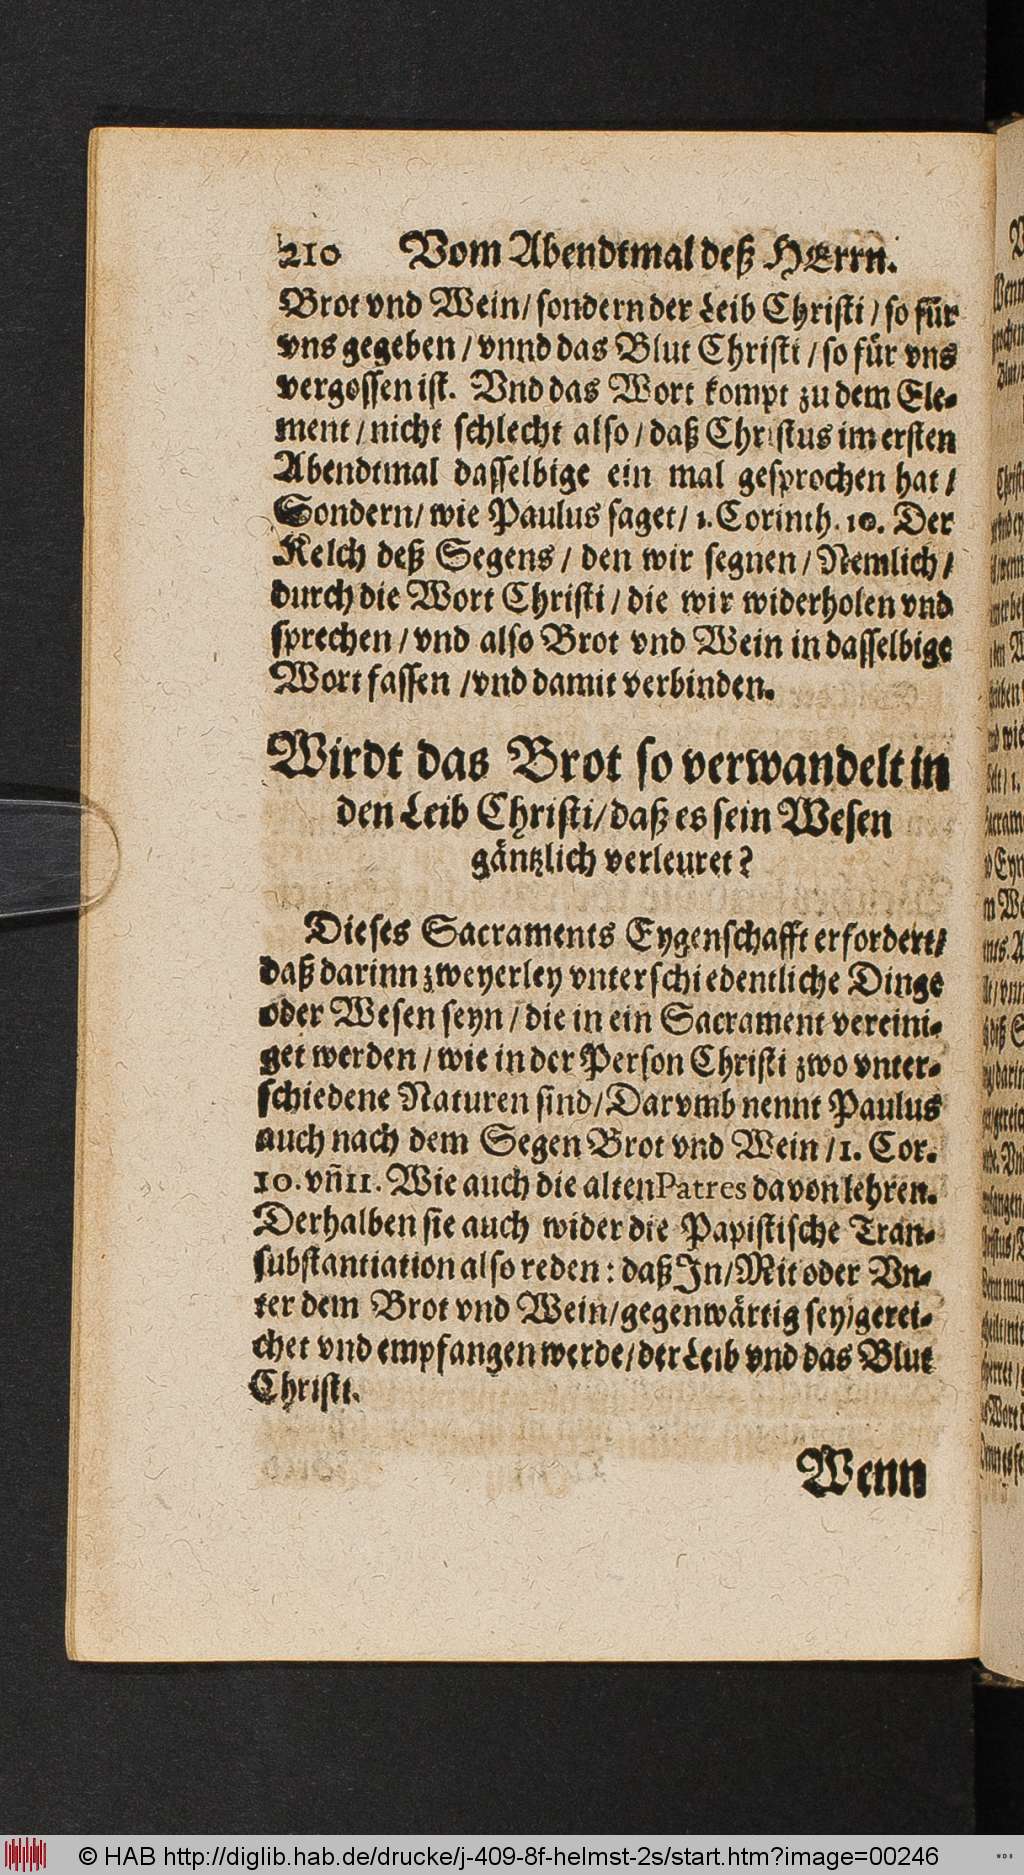 210 Vom Abendtmal deß HErrn.
Brot vnd Wein/ sondern der Leib Christi / so für
vns gegeben / vnnd das Blut Christi / so für vns
vergossen ist. Vnd das Wort kompt zu dem Ele-
ment / nicht schlecht also / daß Christus im ersten
Abendtmal dasselbige ein mal gesprochen hat /
Sondern/ wie Paulus saget/ 1. Corinth. 10. Der
Kelch deß Segens / den wir segnen / Nemlich /
durch die Wort Christi / die wir widerholen vnd
sprechen / vnd also Brot vnd Wein in dasselbige
Wort fassen / vnd damit verbinden.
Wirdt das Brot so verwandelt in
den Leib Christi/ daß es sein Wesen
gäntzlich verleuret?
Dieses Sacraments Eygenschafft erfordert/
daß darinn zweyerley vnterschiedentliche Dinge
oder Wesen seyn / die in ein Sacrament vereini-
get werden / wie in der Person Christi zwo vnter-
schiedene Naturen sind/ Darvmb nennt Paulus
auch nach dem Segen Brot vnd Wein / 1. Cor.
10. vn̄ 11. Wie auch die alten Patres davon lehren.
Derhalben sie auch wider die Papistische Tran-
substantiation also reden: daß In/ Mit oder Vn-
ter dem Brot vnd Wein/ gegenwärtig sey/ gerei-
chet vnd empfangen werde/ der Leib vnd das Blut
Christi.
Wenn
© HAB http://diglib.hab.de/drucke/j-409-8f-helmst-2s/start.htm?image=00246